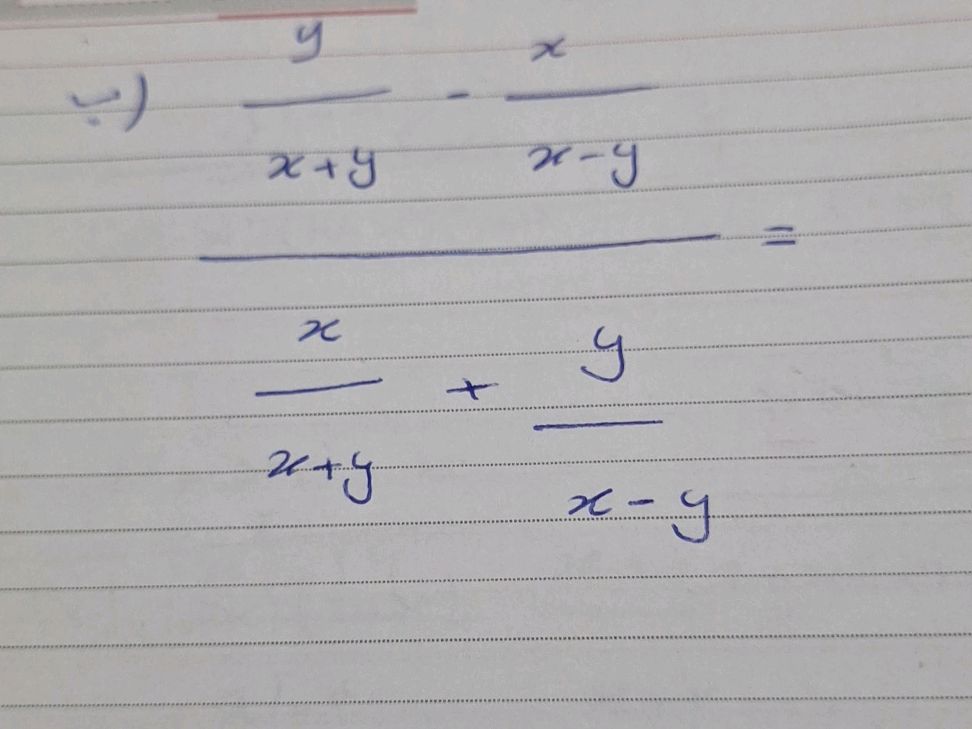 ب) y/(x+y) - x/(x-y)
=
x/(x+y) + y/(x-y)